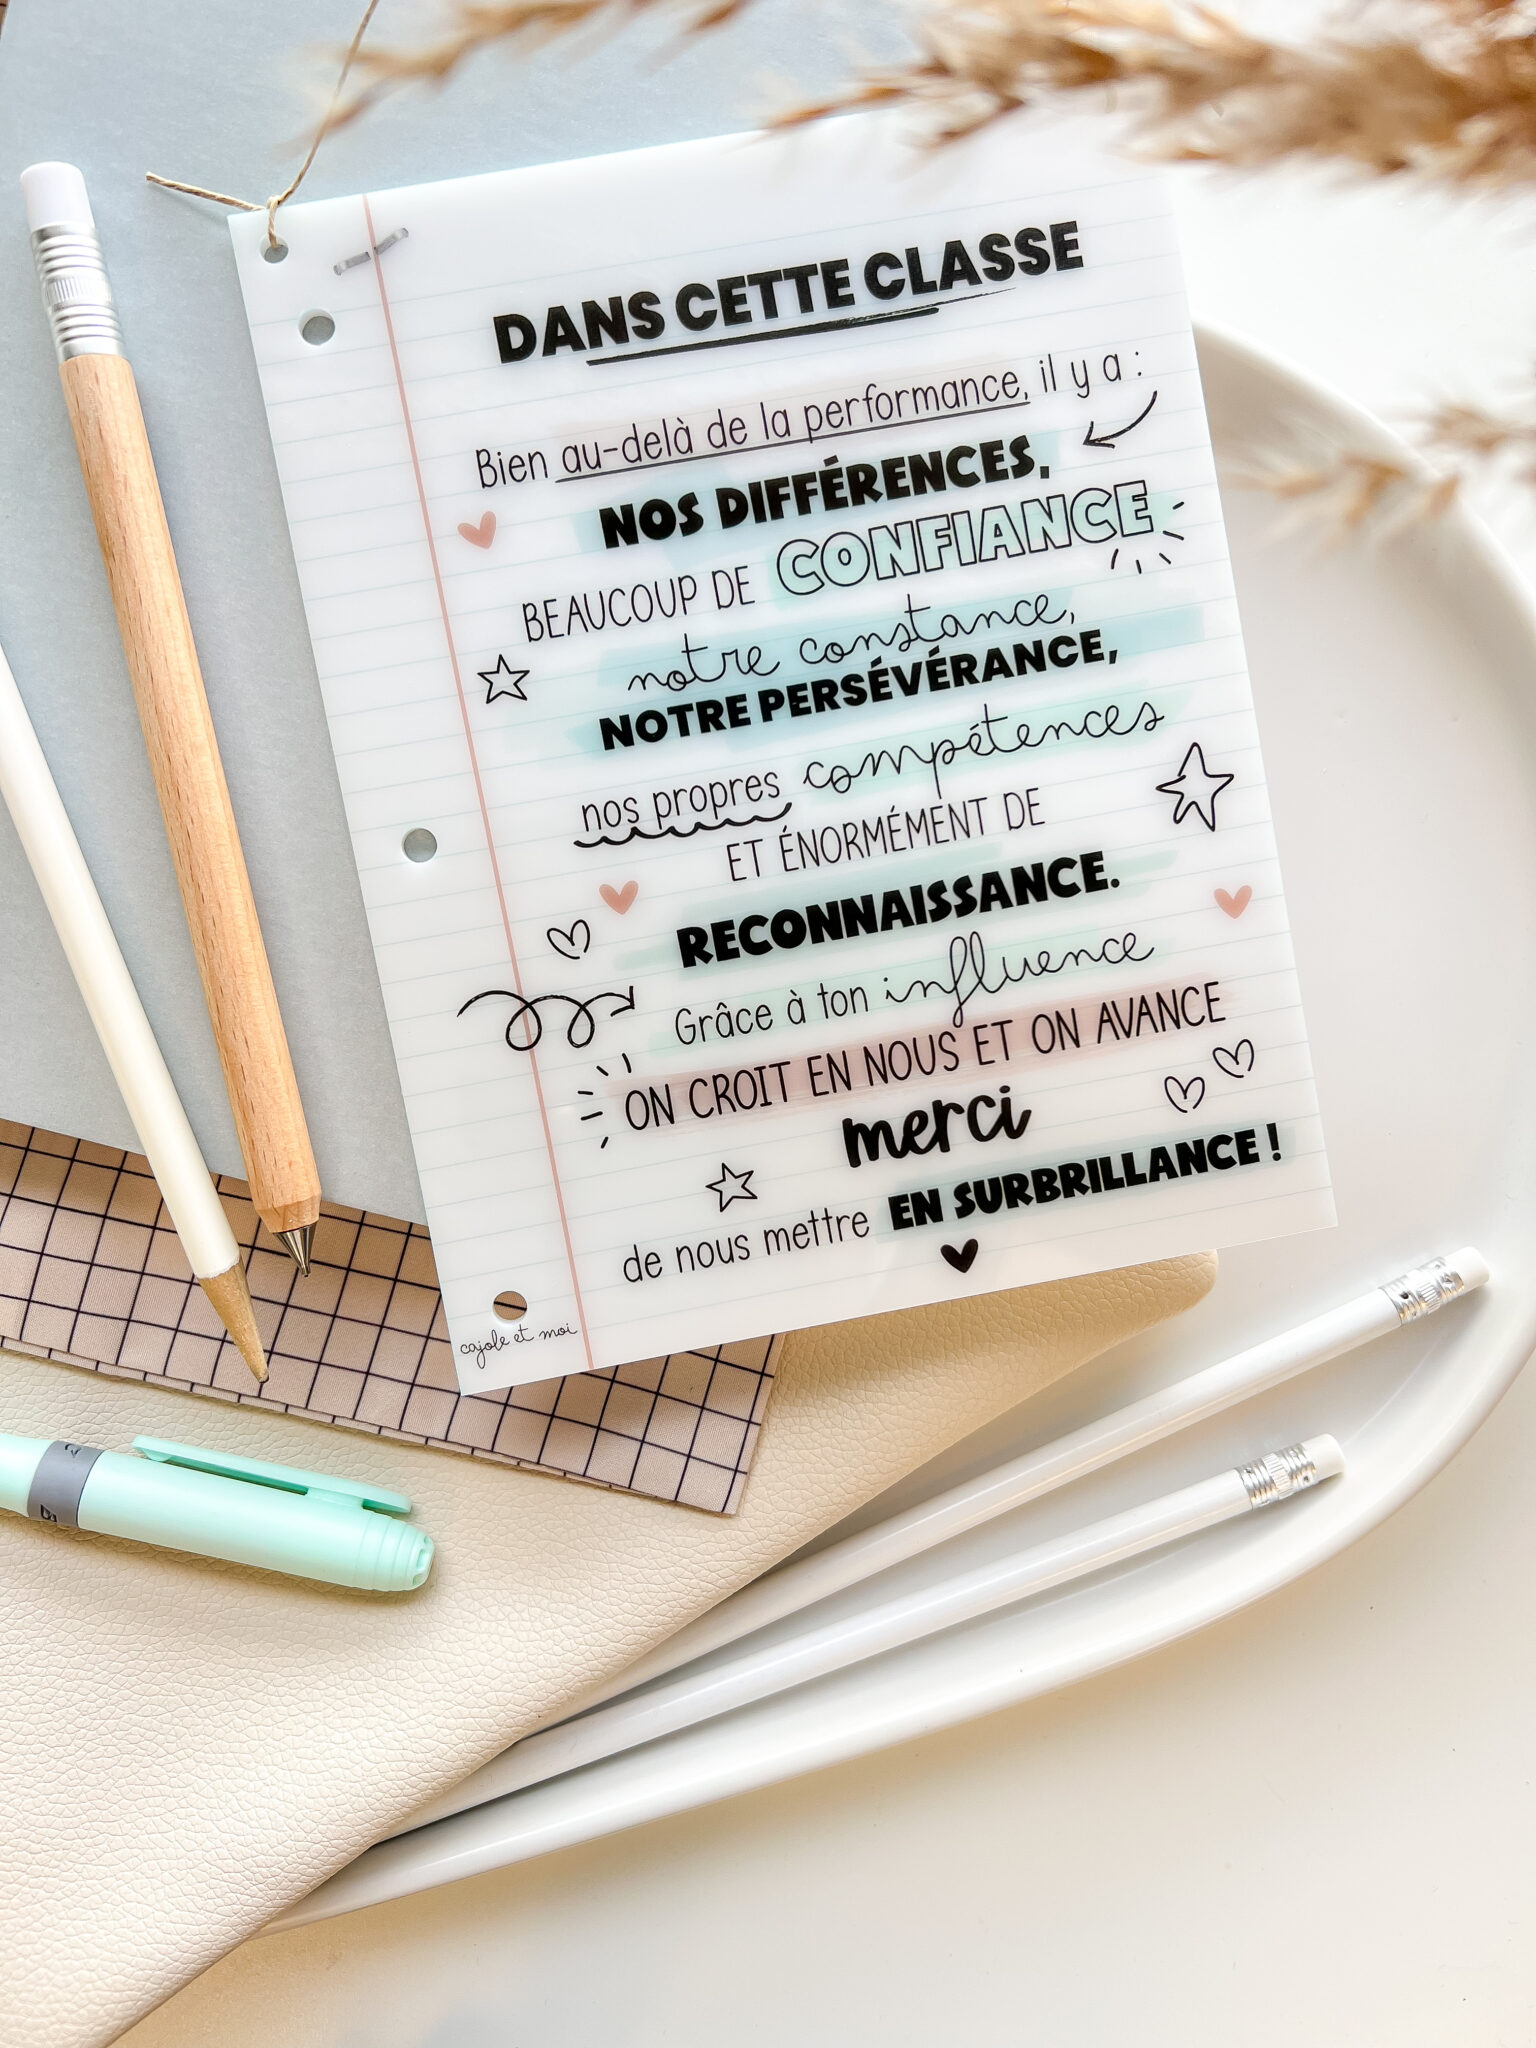 DANS CETTE CLASSE
Bien au-delà de la performance, il y a :
NOS DIFFÉRENCES,
BEAUCOUP DE CONFIANCE
notre constance,
NOTRE PERSÉVÉRANCE,
nos propres compétences
ET ÉNORMÉMENT DE
RECONNAISSANCE.
Grâce à ton influence
ON CROIT EN NOUS ET ON AVANCE
merci
de nous mettre EN SURBRILLANCE !
cajole et moi